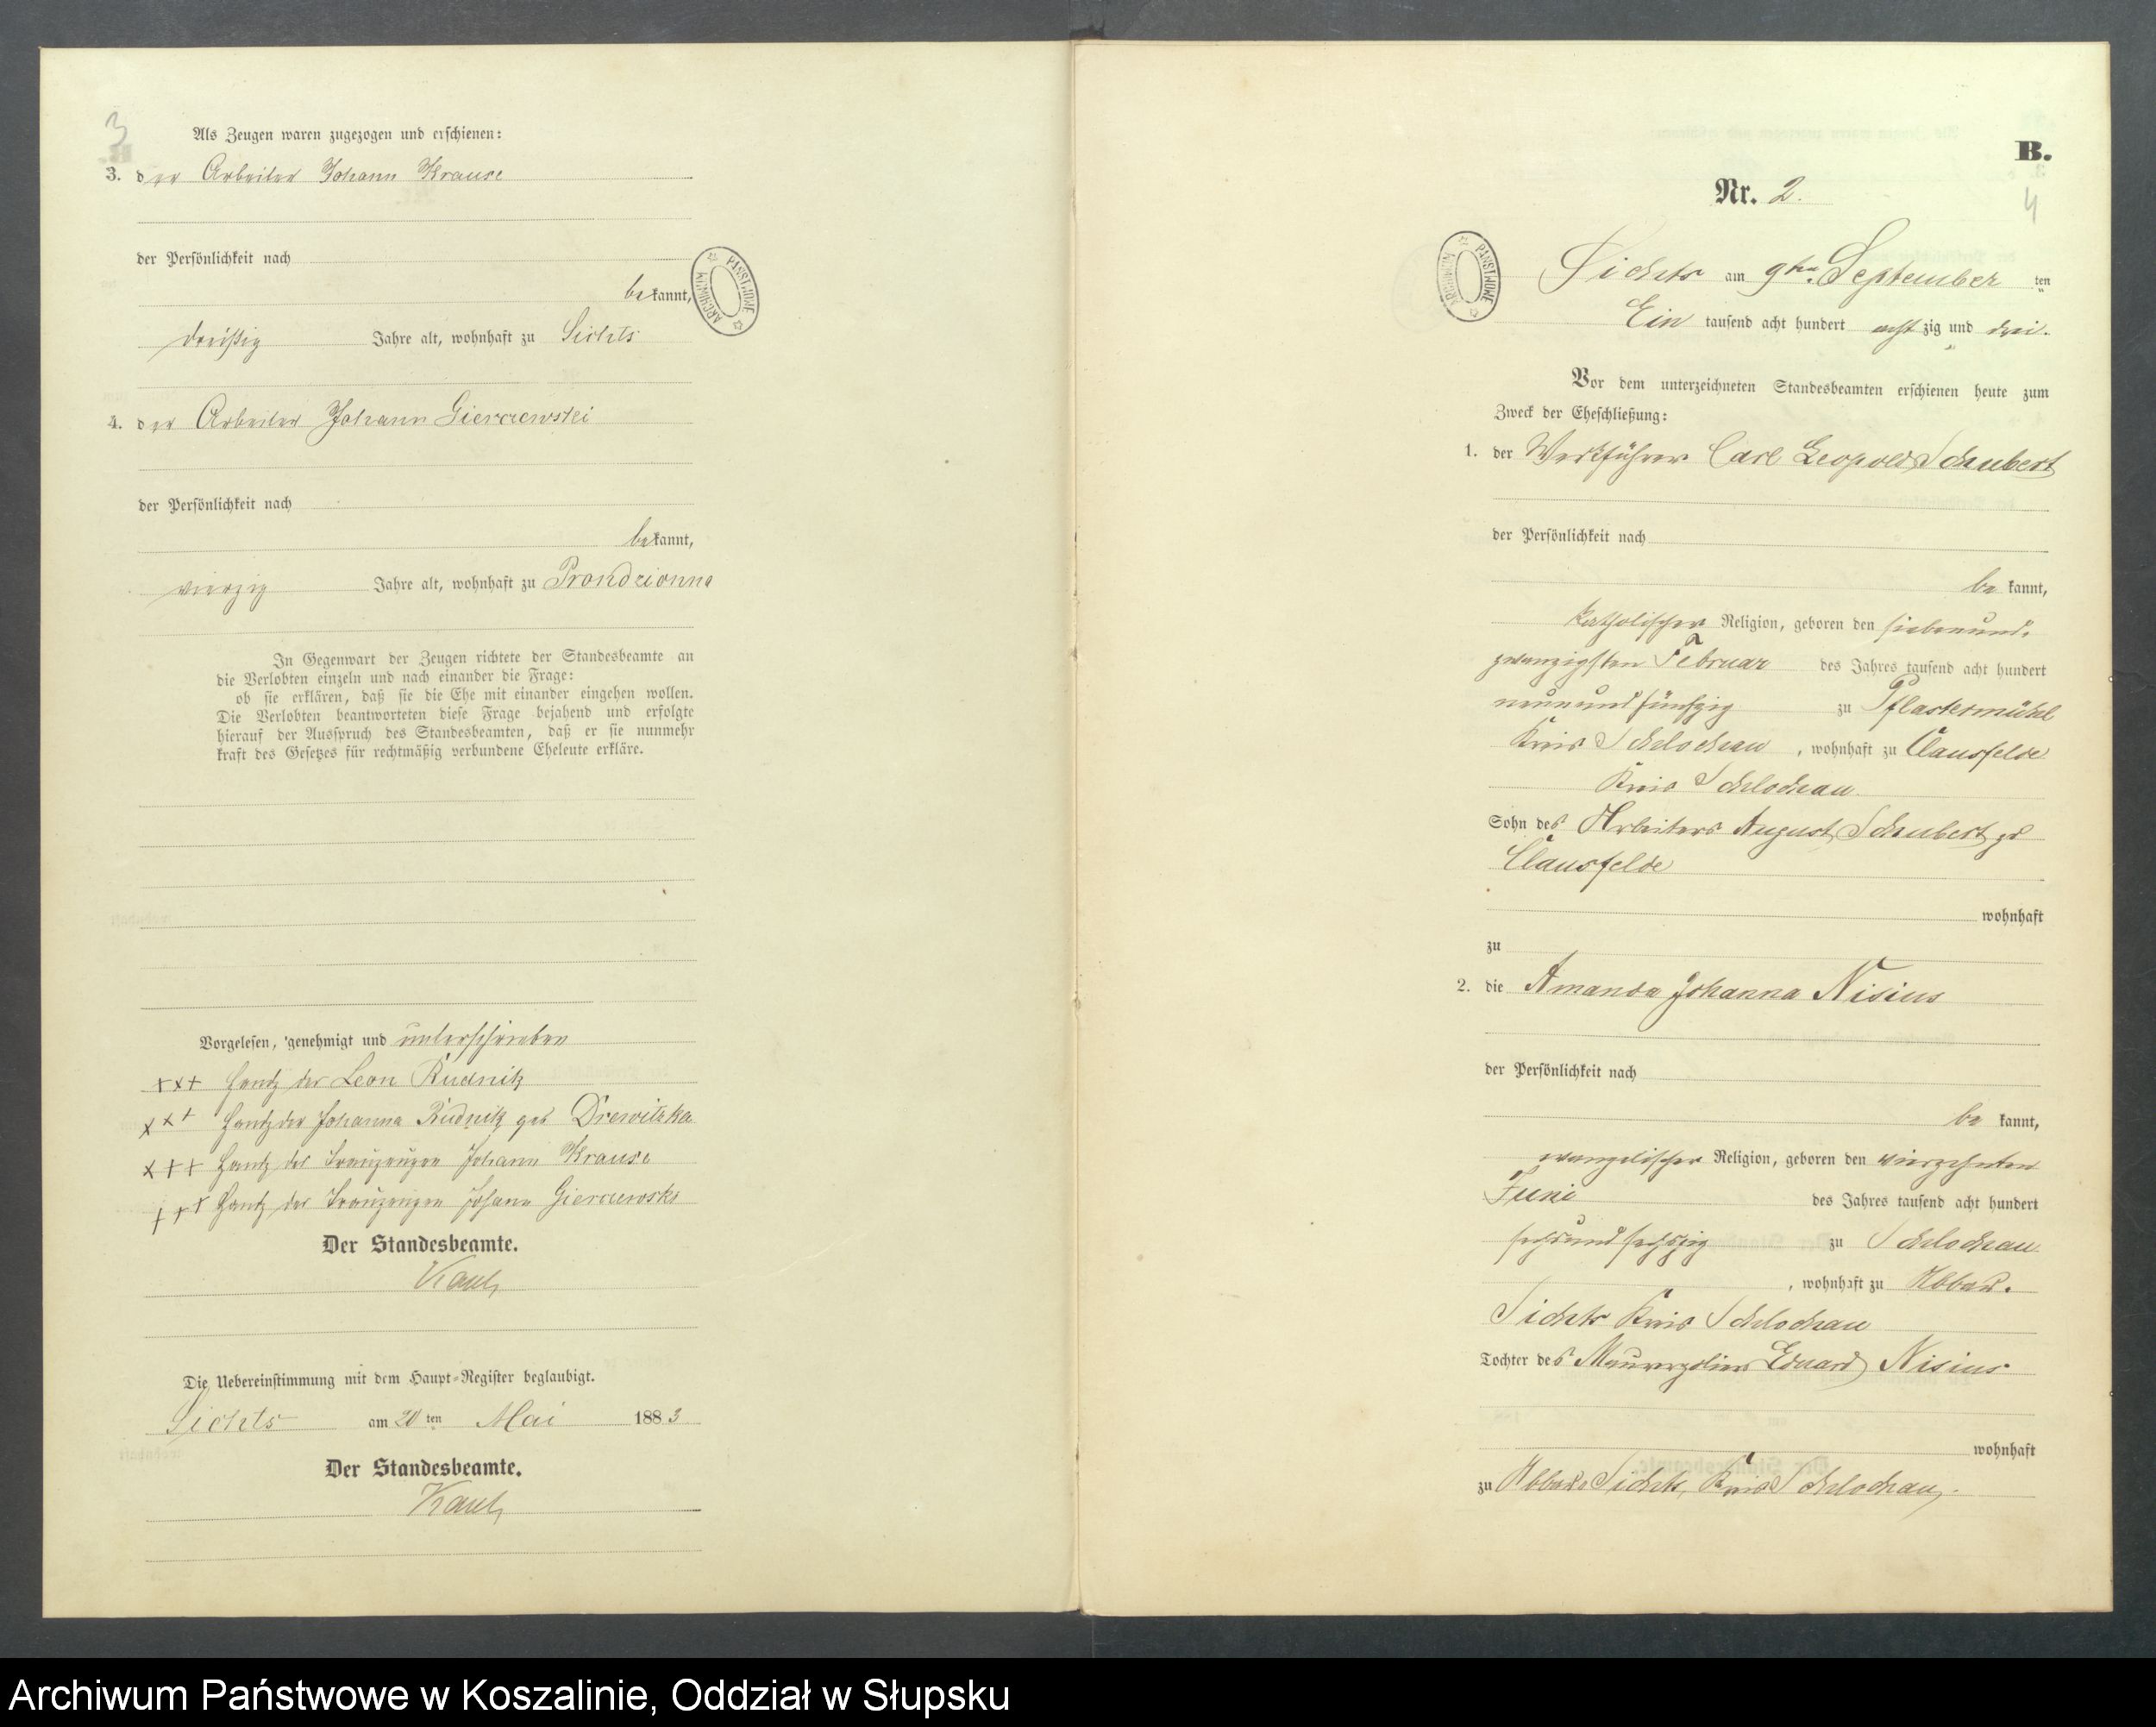 3
Als Zeugen waren zugezogen und erschienen:
3. der Arbeiter Johann Krause
der Persönlichkeit nach
bekannt,
dreißig Jahre alt, wohnhaft zu Sichts
4. der Arbeiter Johann Gierczewski
der Persönlichkeit nach
bekannt,
vierzig Jahre alt, wohnhaft zu Prondzionna
In Gegenwart der Zeugen richtete der Standesbeamte an
die Verlobten einzeln und nach einander die Frage:
ob sie erklären, daß sie die Ehe mit einander eingehen wollen.
Die Verlobten beantworteten diese Frage bejahend und erfolgte
hierauf der Ausspruch des Standesbeamten, daß er sie nunmehr
kraft des Gesetzes für rechtmäßig verbundene Eheleute erkläre.
Vorgelesen, genehmigt und unterschrieben
+++ Handz der Leon Rudnik
+++ Handz der Johanna Rudnik geb Drewitzka
+++ Handz des Trauzeugen Johann Krause
+++ Handz des Trauzeugen Johann Gierczewski
Der Standesbeamte.
Die Uebereinstimmung mit dem Haupt-Register beglaubigt.
Sichts am 20 ten Mai 1883
Der Standesbeamte.
ARCHIWUM PAŃSTWOWE
B.
4
Nr. 2.
ARCHIWUM PAŃSTWOWE
Sichts am 9ten September ten
Ein tausend acht hundert acht zig und drei.
Vor dem unterzeichneten Standesbeamten erschienen heute zum
Zweck der Eheschließung:
1. der Werkführer Carl Leopold Schubert
der Persönlichkeit nach
be kannt,
katholischer Religion, geboren den siebenund-
zwanzigsten Februar des Jahres tausend acht hundert
neunundfünfzig zu Pflastermühl
Kreis Schlochau, wohnhaft zu Clausfelde
Kreis Schlochau
Sohn des Arbeiters August Schubert zu
Clausfelde
wohnhaft
zu
2. die Amanda Johanna Nisius
der Persönlichkeit nach
be kannt,
evangelischer Religion, geboren den vierzehnten
Juni des Jahres tausend acht hundert
sechsundsechszig zu Schlochau
, wohnhaft zu Abbau.
Sichts Kreis Schlochau
Tochter des Maurerpolier Eduard Nisius
wohnhaft
zu Abbau Sichts, Kreis Schlochau.
Archiwum Państwowe w Koszalinie, Oddział w Słupsku